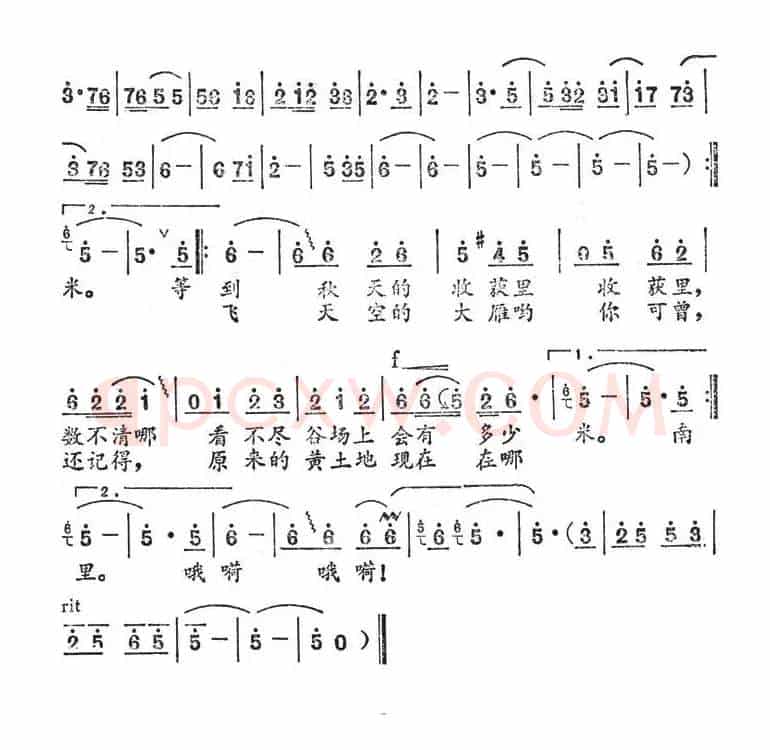 3·76|7655|56 16|2 12 36|2·3|2-|3·5|5 32 31|17 73|
3 76 53|6-|6 71|2-|5 35|6-|6-|5-|5-|5-|5-):‖
2.
6 5-|5· ∨ 5‖:6-|6 6 2 6|5 #4 5|0 5 6 2|
米。 等 到 秋 天的 收 获里 收 获里,
飞 天 空的 大 雁哟 你 可曾,
f 1.
6 2 2 1|0 1 2 3|2 1 2|6 6 (5) 2 6·|6 5-|5·5:‖
数不清哪 看 不尽 谷场上 会有 多少 米。 南
还记得, 原 来的 黄土地 现在 在哪
2.
6 5-|5·5|6-|6 6 6 6|5 6 6 5·|5·(3|2 5 5 3|
里。 哦嗬 哦嗬!
rit
2 5 6 5|5-|5-|5 0)‖
qpcxw.COM